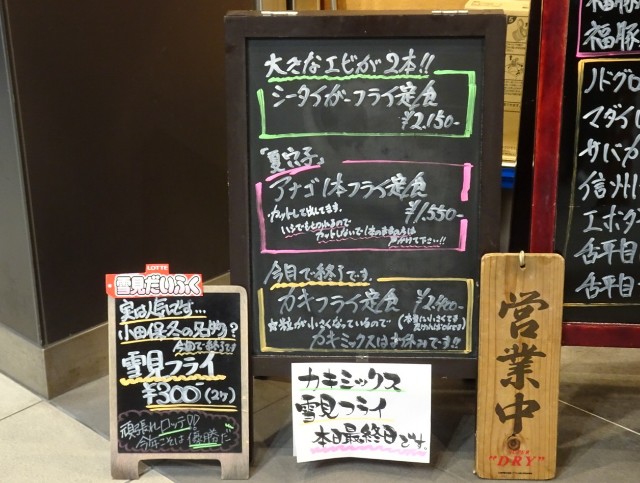 大きなエビが2本!!
シータイガーフライ定食
¥2,150-
「夏穴子」
アナゴ1本フライ定食
¥1,550-
カットして出してます。
カットしないで
声かけて下さい!!
今日で終了です。
カキフライ定食 ¥2,400-
☆粒が小さくなっているので
カキミックスはお休みです!!
LOTTE
雪見だいふく
実は人気です...
小田保冬の名物?
今日で終了です
雪見フライ
¥300-(2ケ)
頑張れロッテ♡♡
今年こそは優勝だ
カキミックス
雪見フライ
本日最終日です。
営業中
"DRY"
福豚
福豚
ノドグロ
マダイ
サバカ
信州
エボダ
舌平目
舌平目